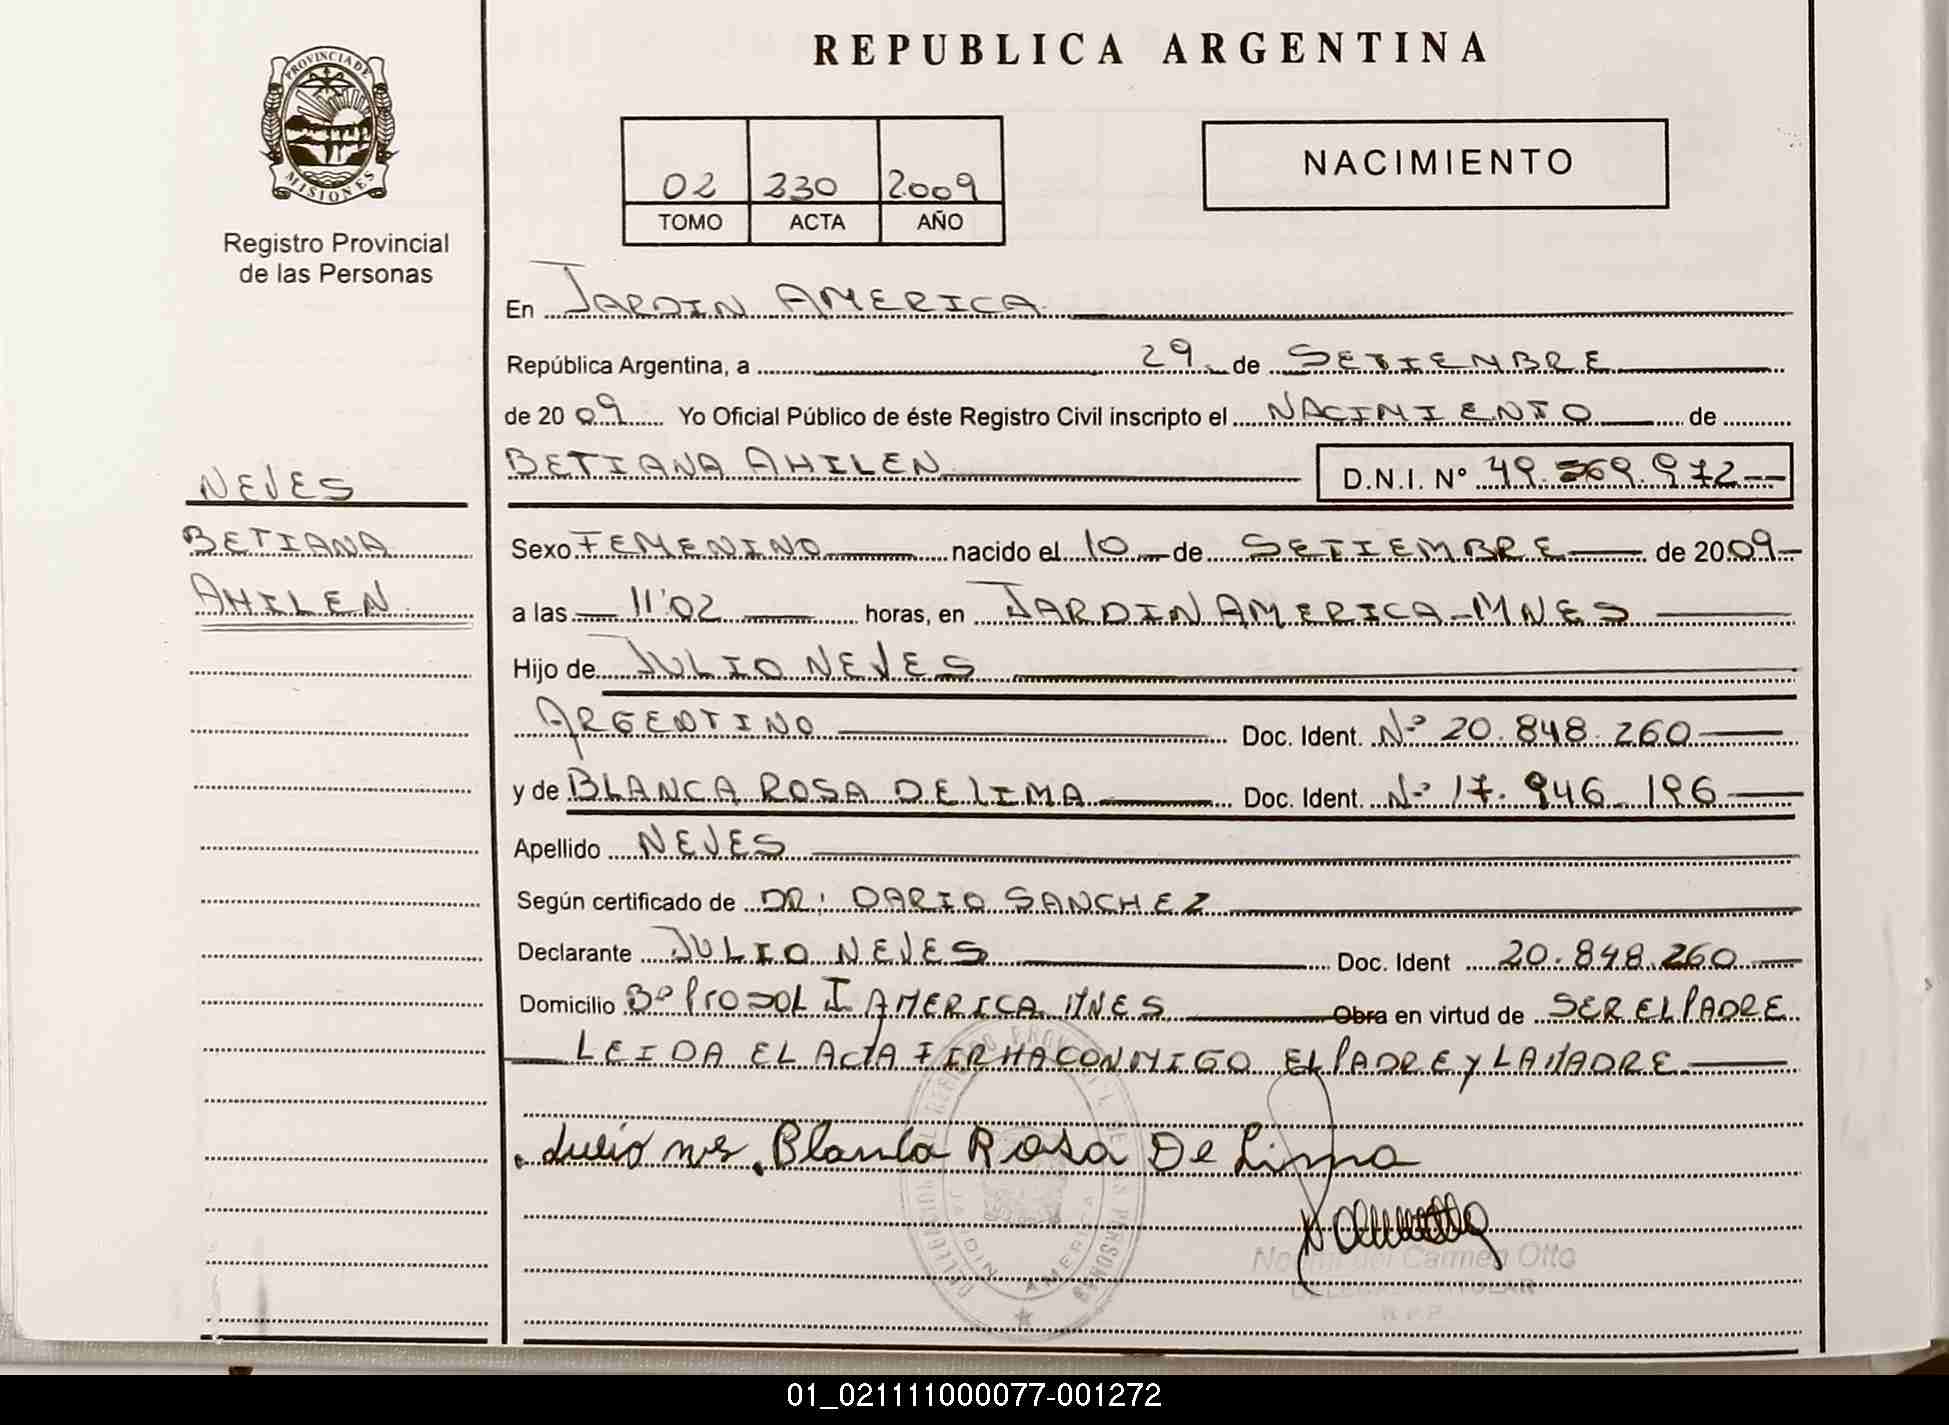 PROVINCIA DE
MISIONES
Registro Provincial
de las Personas
NEVES
BETIANA
AHILEN
REPUBLICA ARGENTINA
02 230 2009
TOMO ACTA AÑO
NACIMIENTO
En JARDIN AMERICA
República Argentina, a 29 de SETIENBRE
de 2009 Yo Oficial Público de éste Registro Civil inscripto el NACIMIENTO de
BETIANA AHILEN D.N.I. Nº 49.569.972
Sexo FEMENINO nacido el 10 de SETIEMBRE de 2009
a las 11'02 horas, en JARDIN AMERICA-MNES
Hijo de JULIO NEVES
ARGENTINO Doc. Ident. Nº 20.848.260
y de BLANCA ROSA DE LIMA Doc. Ident. Nº 17.946.196
Apellido NEVES
Según certificado de DR: DARIO SANCHEZ
Declarante JULIO NEVES Doc. Ident 20.848.260
Domicilio Bº ProSOL I AMERICA MNES Obra en virtud de SER EL PADRE
LEIDA EL ACTA FIRMA CONMIGO EL PADRE y LA MADRE
Blanca Rosa De Lima
DELEGACION REGISTRO PROVINCIAL DE LAS PERSONAS
JARDIN AMERICA
del Carmen Otto
TITULAR
R.P.P.
01_021111000077-001272